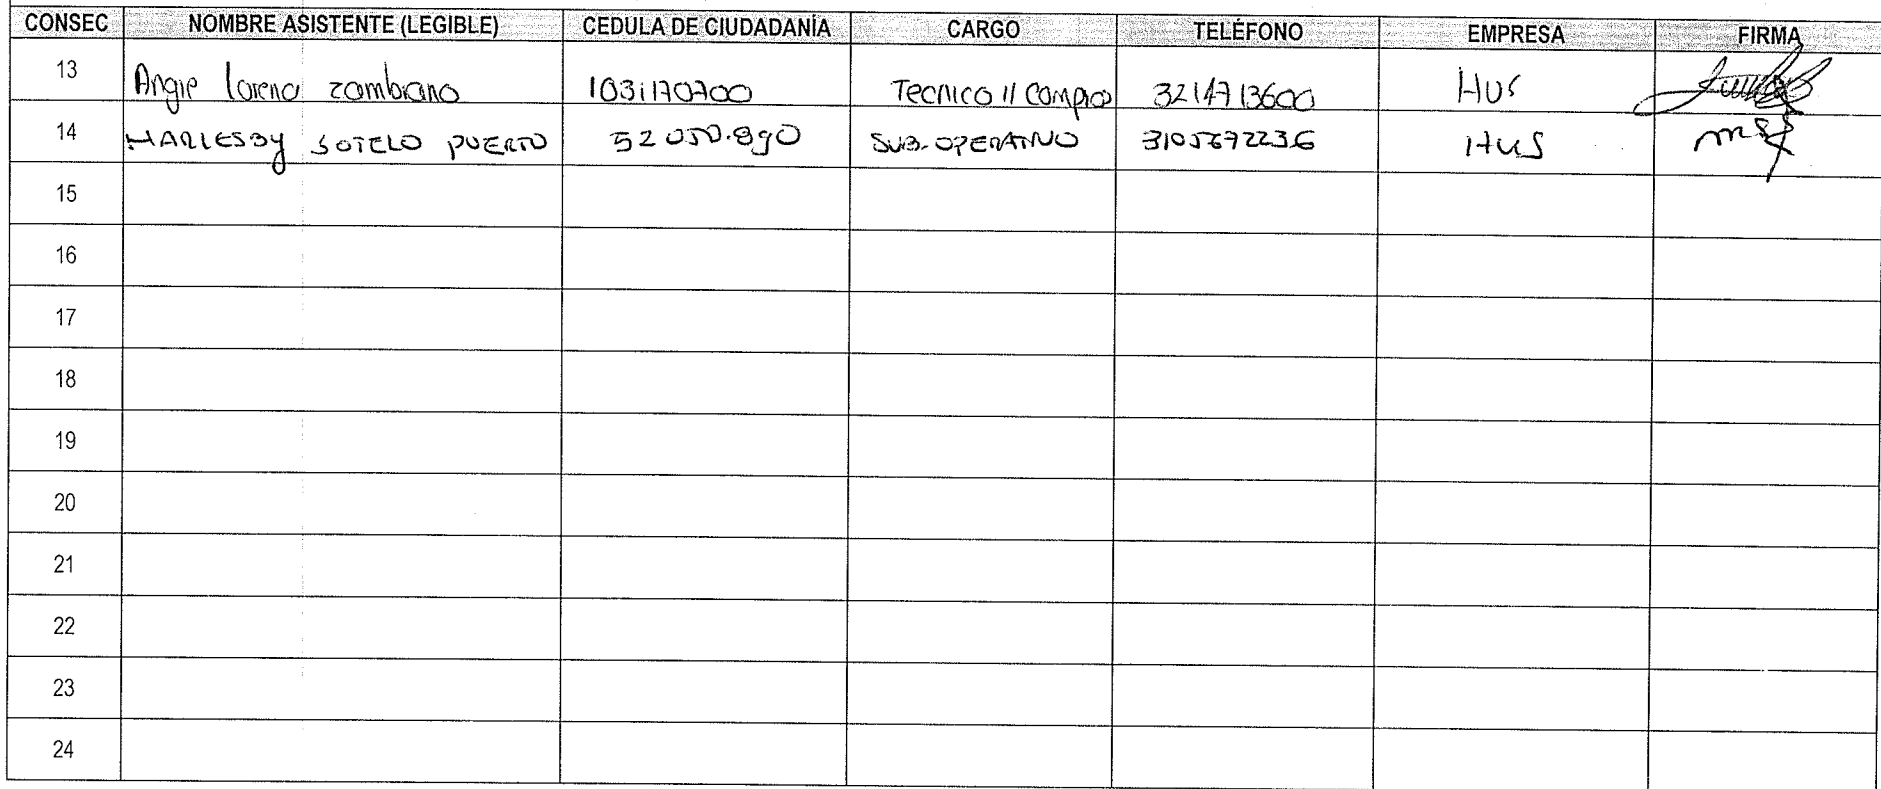 CONSEC NOMBRE ASISTENTE (LEGIBLE) CEDULA DE CIUDADANÍA CARGO TELÉFONO EMPRESA FIRMA
13 Angie lorena zambrano 1031170700 Tecnico II Compras 3214713600 HUS
14 MARLESBY SOTELO PUERTO 52050.890 SUB-OPERATIVO 3105672236 HUS
15
16
17
18
19
20
21
22
23
24